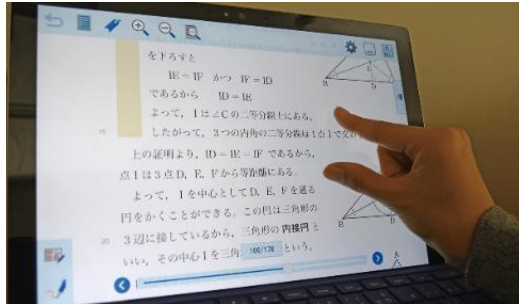 を下ろすと
IE = IF かつ IF = ID
であるから ID = IE
よって, I は∠C の二等分線上にある。
15 したがって, 3つの内角の二等分線は1点 I で交
上の証明より, ID = IE = IF であるから,
点 I は3点 D, E, F から等距離にある。
よって, I を中心として D, E, F を通る
円をかくことができる。この円は三角形の
20 3辺に接しているから, 三角形の 内接円 と
いい, その中心 I を三角 という。
166/178
B D
B
A